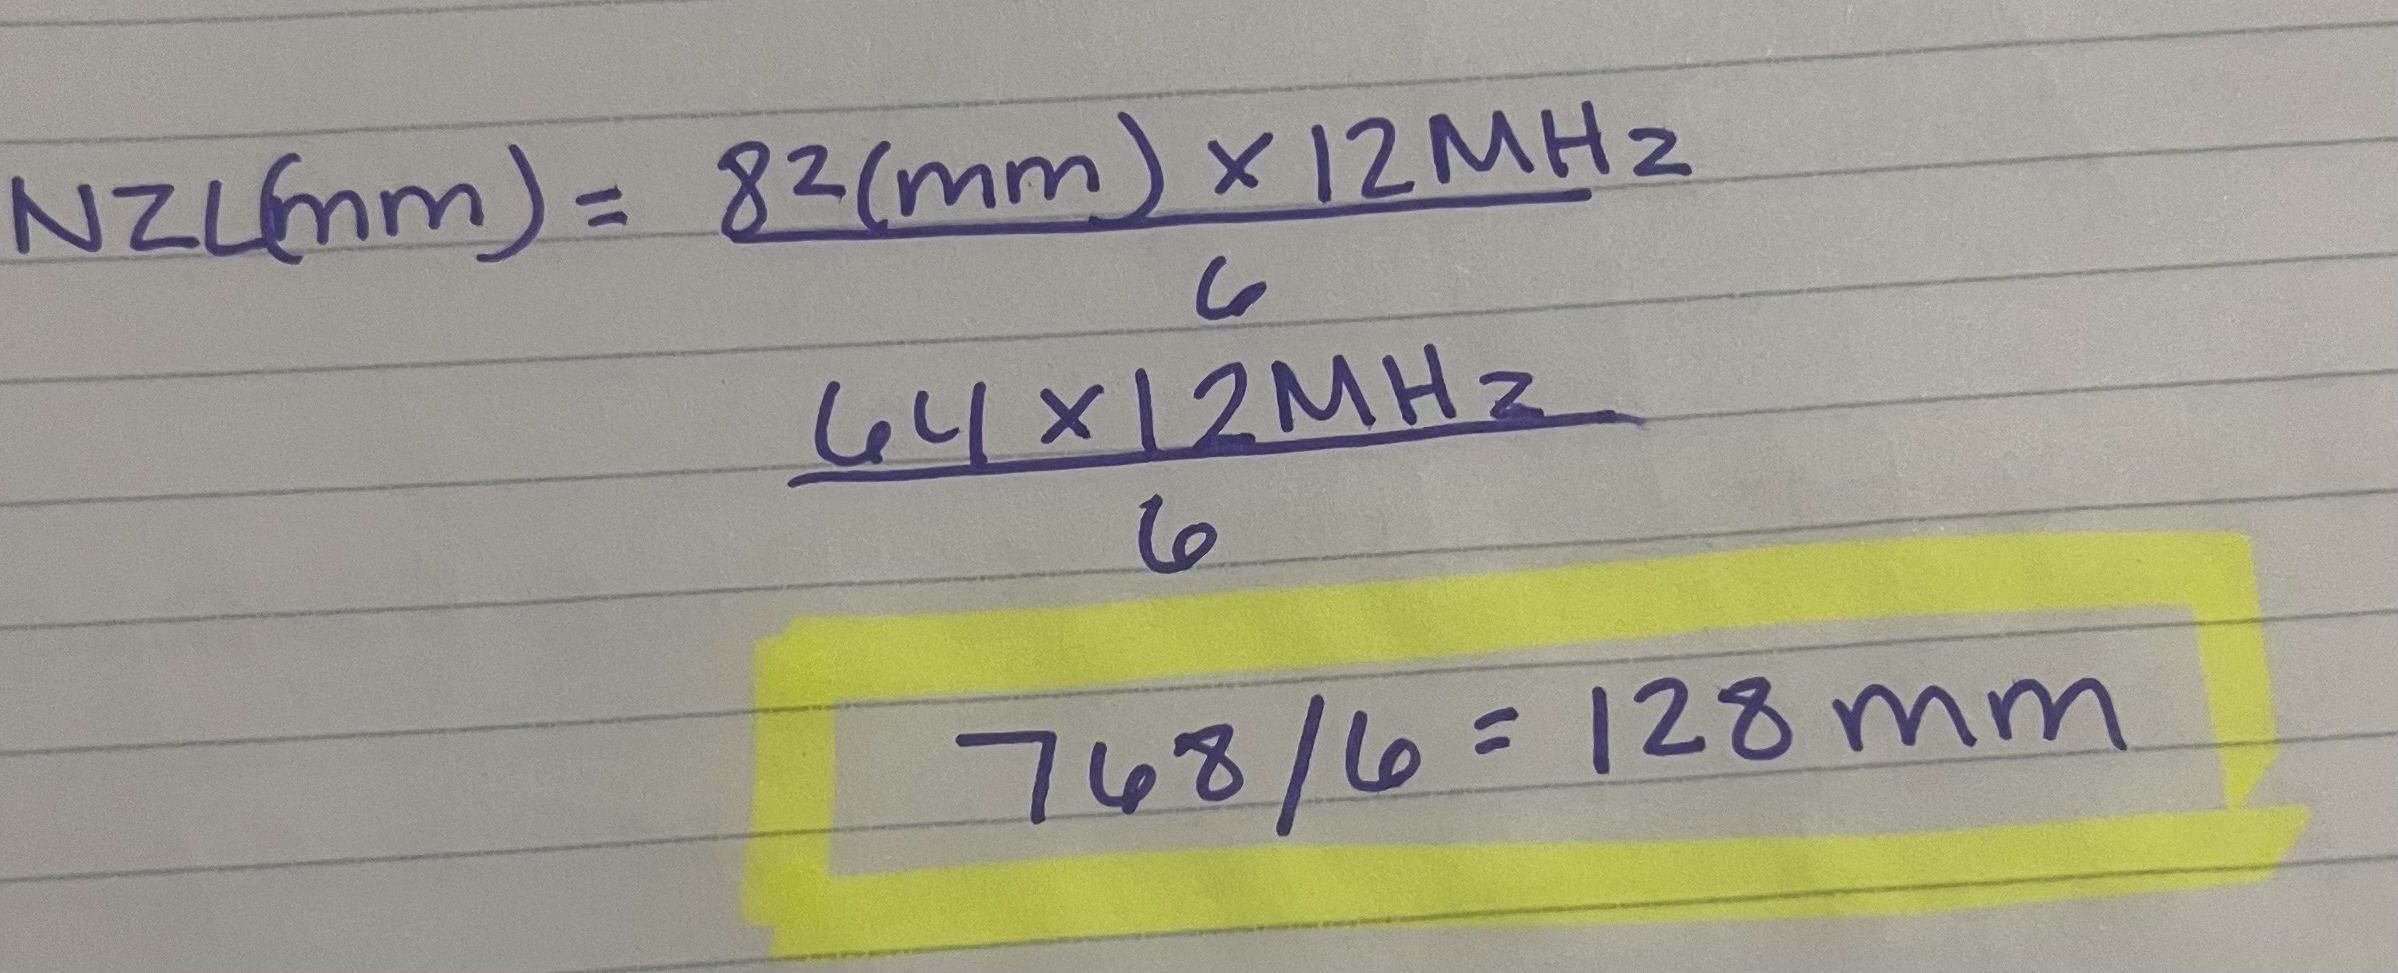 NZL(mm) = 82(mm) x 12MHz
6
64 x 12MHz
6
768/6 = 128 mm